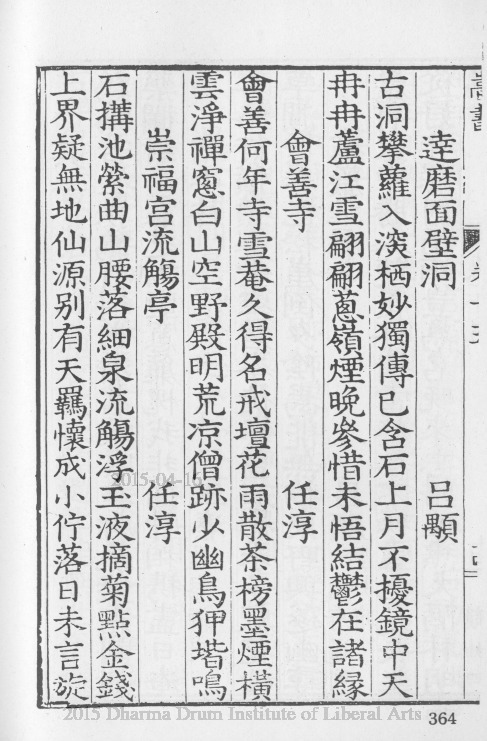 嵩書
達磨面壁洞　呂顒
古洞攀蘿入深栖妙獨傳已含石上月不擾鏡中天
冉冉蘆江雪翩翩蔥嶺煙晚參惜未悟結鬱在諸緣
會善寺　任淳
會善何年寺雪菴久得名戒壇花雨散茶榜墨煙橫
雲淨禪窻白山空野殿明荒凉僧跡少幽鳥狎堦鳴
崇福宮流觴亭　任淳
石搆池縈曲山腰落細泉流觴浮玉液摘菊點金錢
上界疑無地仙源別有天羈懷成小佇落日未言旋
2015-04-15
2015 Dharma Drum Institute of Liberal Arts
364